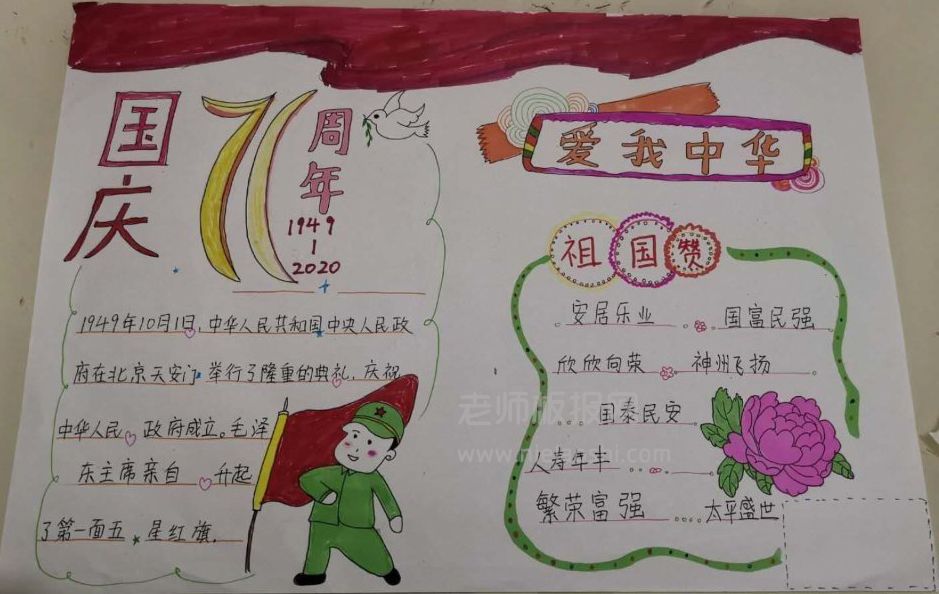 国庆
71
周年
1949
|
2020
1949年10月1日，中华人民共和国中央人民政
府在北京天安门举行了隆重的典礼，庆祝
中华人民政府成立。毛泽
东主席亲自升起
了第一面五星红旗.
爱我中华
祖国赞
安居乐业 国富民强
欣欣向荣 神州飞扬
国泰民安
人寿年丰
繁荣富强 太平盛世